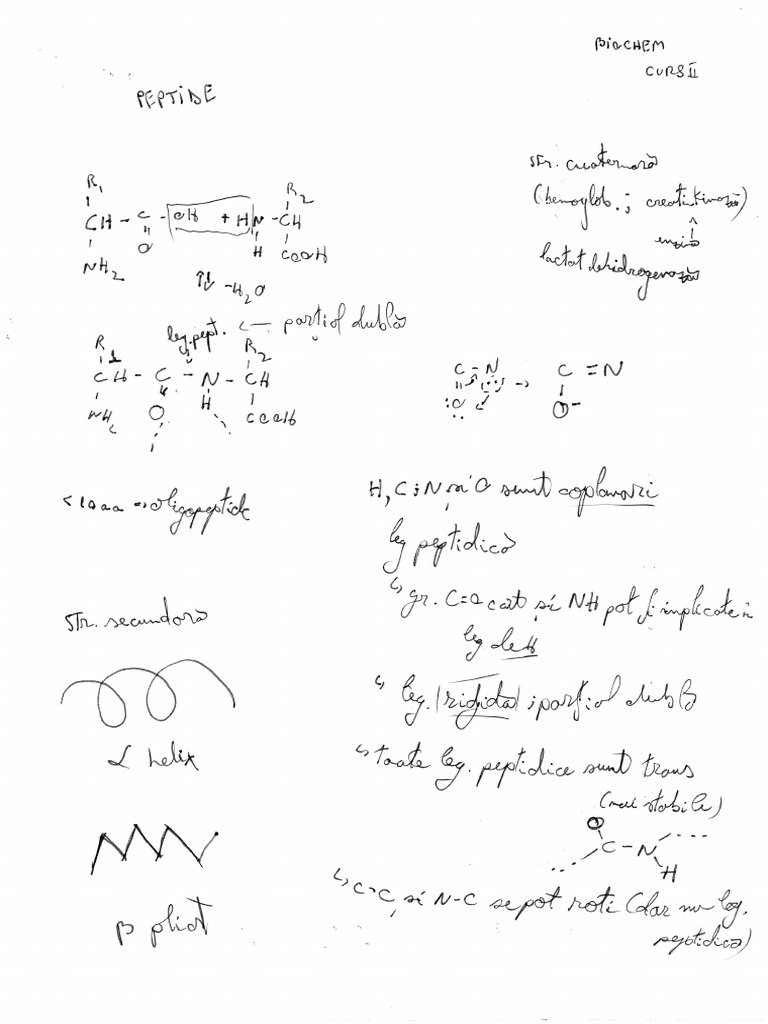 BIOCHEM
CURS II
PEPTIDE
str. cuaternară
(hemoglob.; creatinkinază)
enzi
lactat dehidrogenază
R1 R2
CH - C - OH + H N - CH
NH2 O H COOH
-H2O
leg. pept. parțial dublă
R1 R2
CH - C - N - CH
NH2 O H COOH
C - N → C = N
O O-
<10 aa → oligopeptide
H, C; N și O sunt coplanari
leg peptidică
gr. C=O cat și NH pot fi implicate in
leg de H
str. secundară
leg. (rigidă) și parțial dublă
α helix
toate leg. peptidice sunt trans
(mai stabile)
O
C - N
H
β pliat
C-C și N-C se pot roti (dar nu leg.
peptidică)